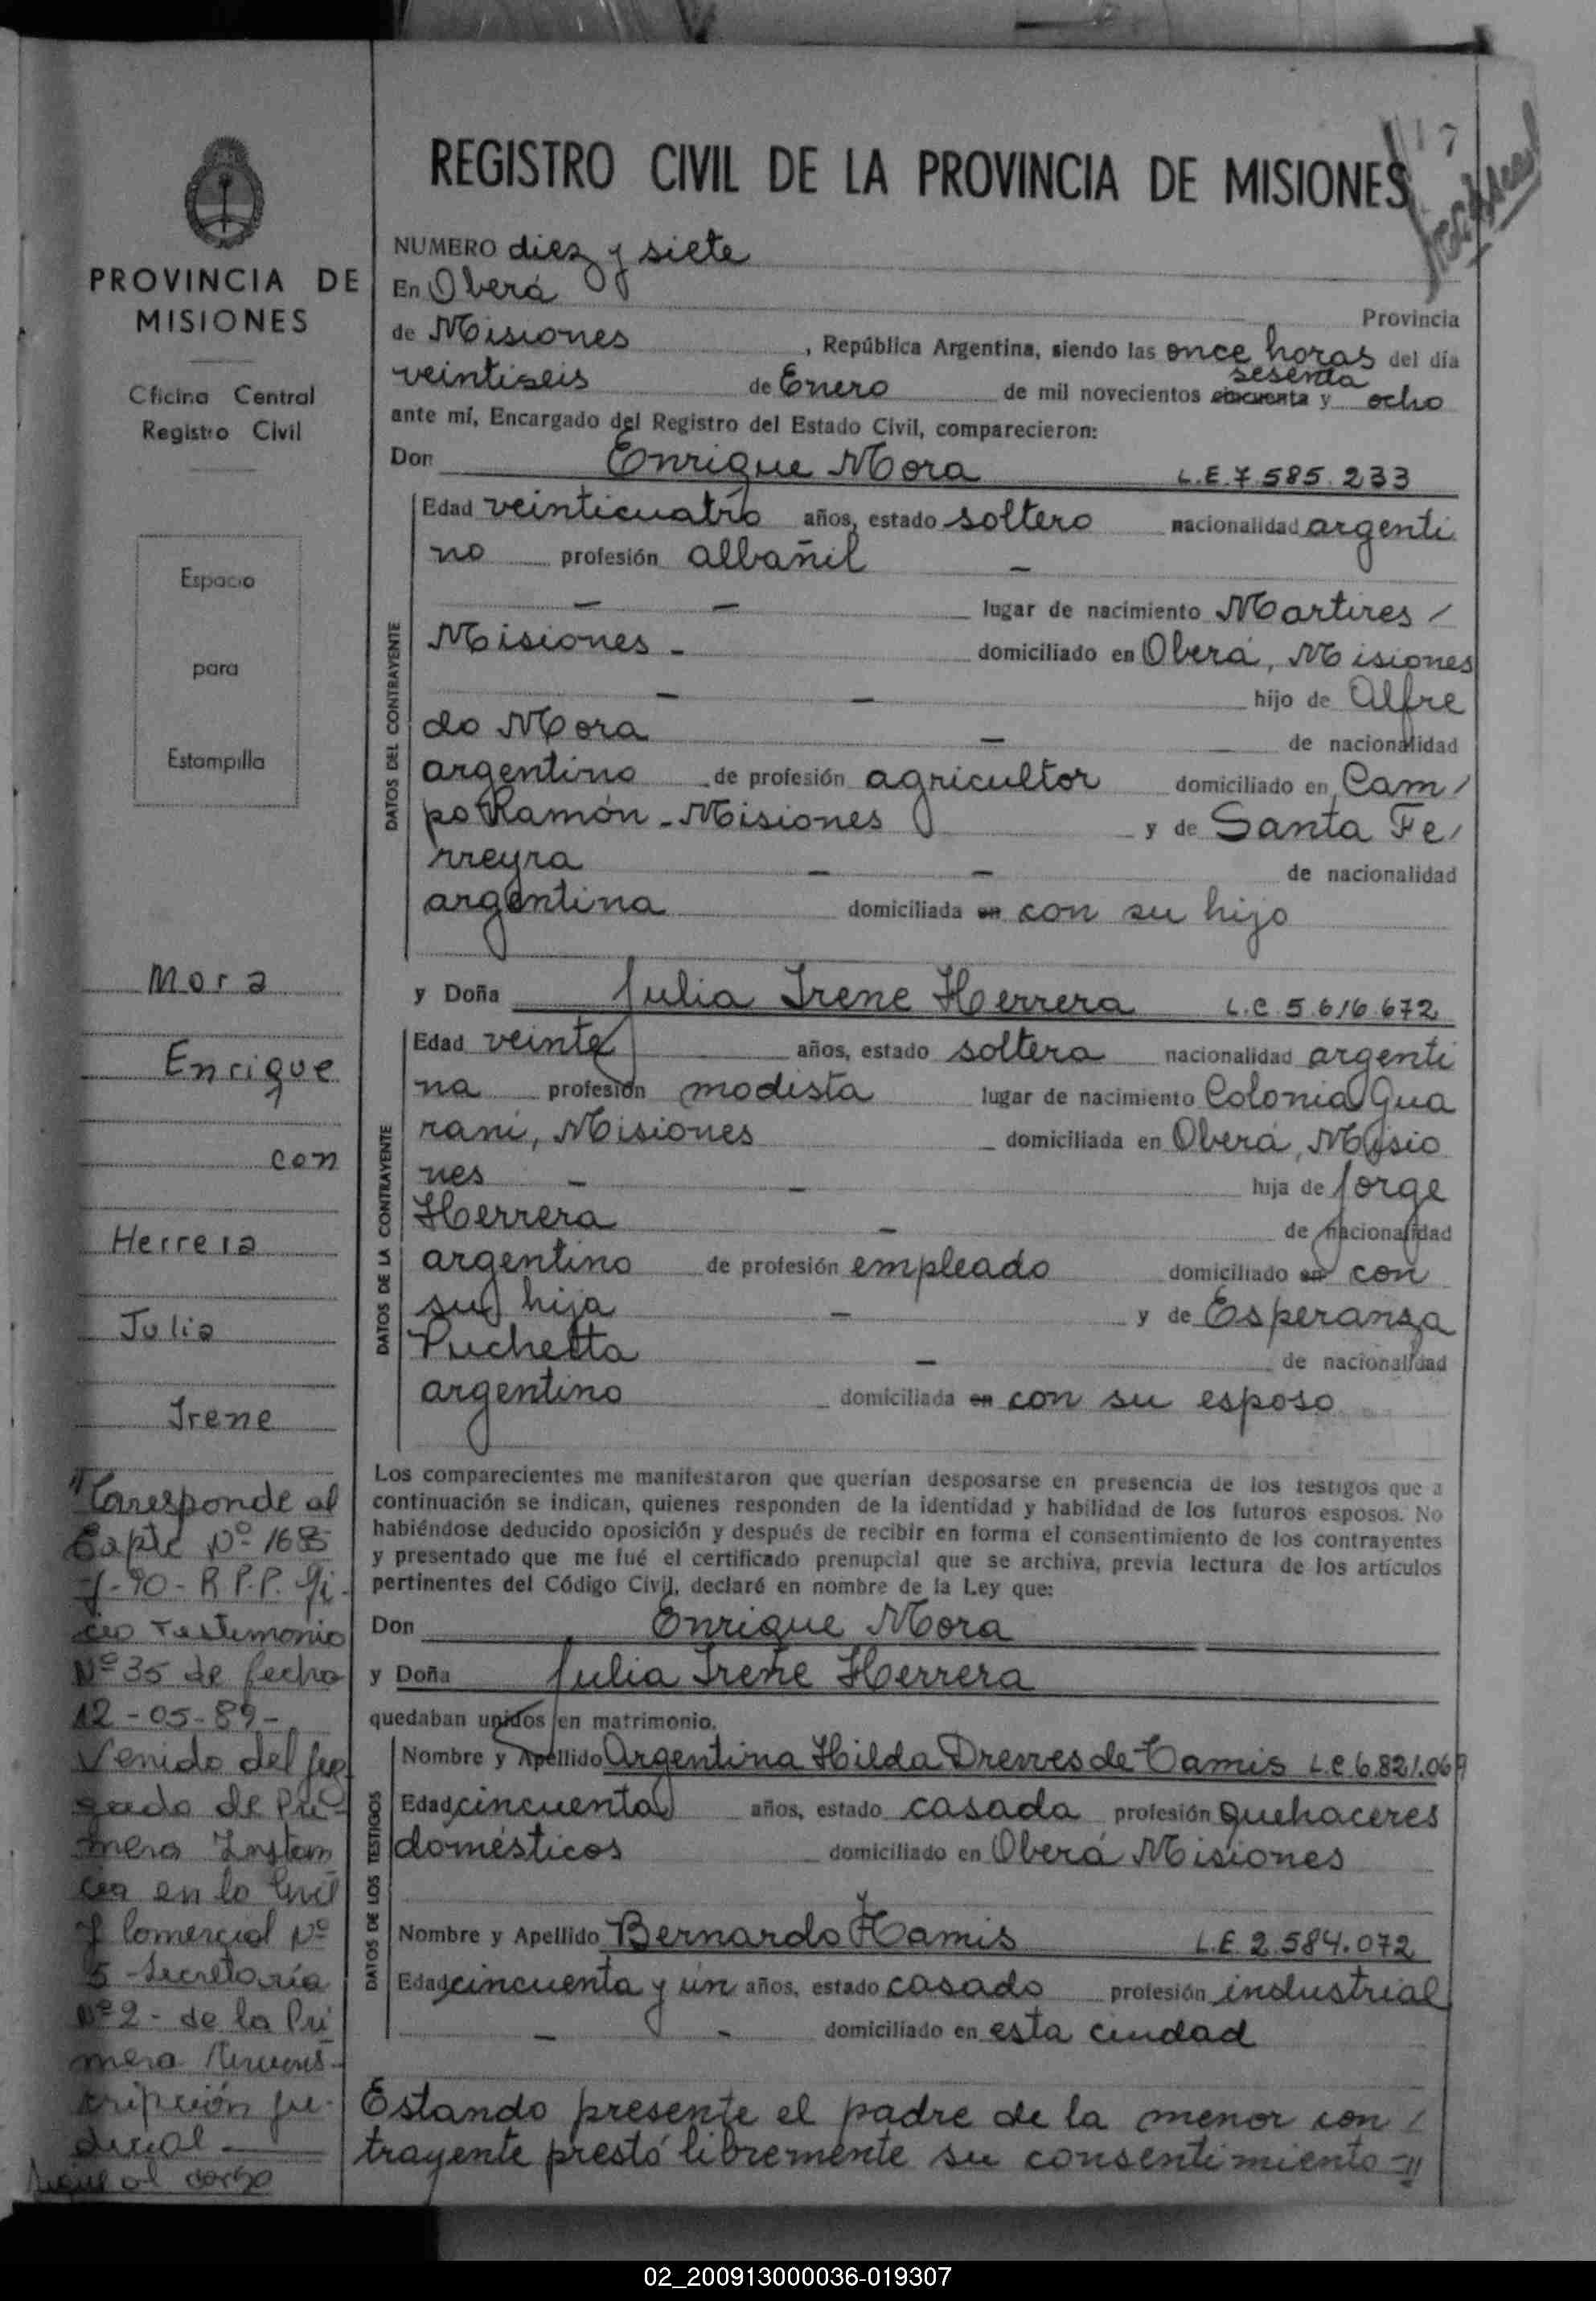 17
REGISTRO CIVIL DE LA PROVINCIA DE MISIONES
PROVINCIA DE
MISIONES
Oficina Central
Registro Civil
Espacio
para
Estampilla
Mora
Enrique
con
Herrera
Julia
Irene
Corresponde al
Expte Nº 1685
-90- R.P.P.
Testimonio
Nº 35 de fecha
12-05-89-
Venido del Juz
gado de Pri-
mera Instan
cia en lo Civil
y Comercial Nº
5 - Secretaría
Nº 2 - de la Pri
mera Circuns-
cripción Ju-
dicial
Sigue al dorso
NUMERO diez y siete
En Oberá
Provincia
de Misiones , República Argentina, siendo las once horas del día
veintiseis de Enero de mil novecientos cincuenta sesenta y ocho
ante mí, Encargado del Registro del Estado Civil, comparecieron:
Don Enrique Mora L.E. 7.585.233
DATOS DEL CONTRAYENTE
Edad veinticuatro años, estado soltero nacionalidad argenti
no profesión albañil -
- - lugar de nacimiento Martires /
Misiones - domiciliado en Oberá, Misiones
- - hijo de Alfre
do Mora - de nacionalidad
argentino de profesión agricultor domiciliado en Cam/
po Ramón - Misiones y de Santa Fe/
rreyra - - de nacionalidad
argentina domiciliada en con su hijo
y Doña Julia Irene Herrera L.C. 5.616.672
DATOS DE LA CONTRAYENTE
Edad veinte años, estado soltera nacionalidad argenti
na profesión modista lugar de nacimiento Colonia Gua
raní, Misiones domiciliada en Oberá, Misio
nes - - hija de Jorge
Herrera - de nacionalidad
argentino de profesión empleado domiciliado en con
su hija - y de Esperanza
Puchetta - de nacionalidad
argentino domiciliada en con su esposo
Los comparecientes me manifestaron que querían desposarse en presencia de los testigos que a
continuación se indican, quienes responden de la identidad y habilidad de los futuros esposos. No
habiéndose deducido oposición y después de recibir en forma el consentimiento de los contrayentes
y presentado que me fué el certificado prenupcial que se archiva, previa lectura de los artículos
pertinentes del Código Civil, declaré en nombre de la Ley que:
Don Enrique Mora
y Doña Julia Irene Herrera
quedaban unidos en matrimonio.
DATOS DE LOS TESTIGOS
Nombre y Apellido Argentina Hilda Drewes de Tamis L.C. 6.821.069
Edad cincuenta años, estado casada profesión quehaceres
domésticos domiciliado en Oberá Misiones
Nombre y Apellido Bernardo Tamis L.E. 2.584.072
Edad cincuenta y ún años, estado casado profesión industrial
- - domiciliado en esta ciudad
Estando presente el padre de la menor con /
trayente prestó libremente su consentimiento =//
02_200913000036-019307